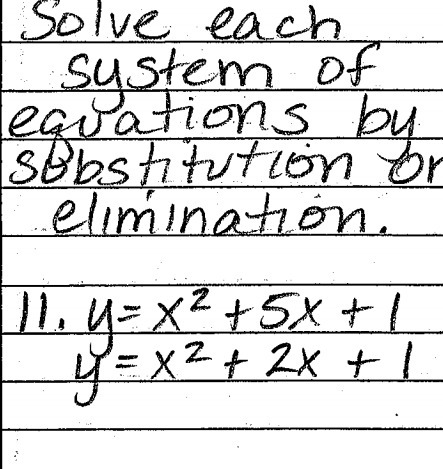 Solve each
system of
equations by
substitution or
elimination.
11. y = x² + 5x + 1
y = x² + 2x + 1